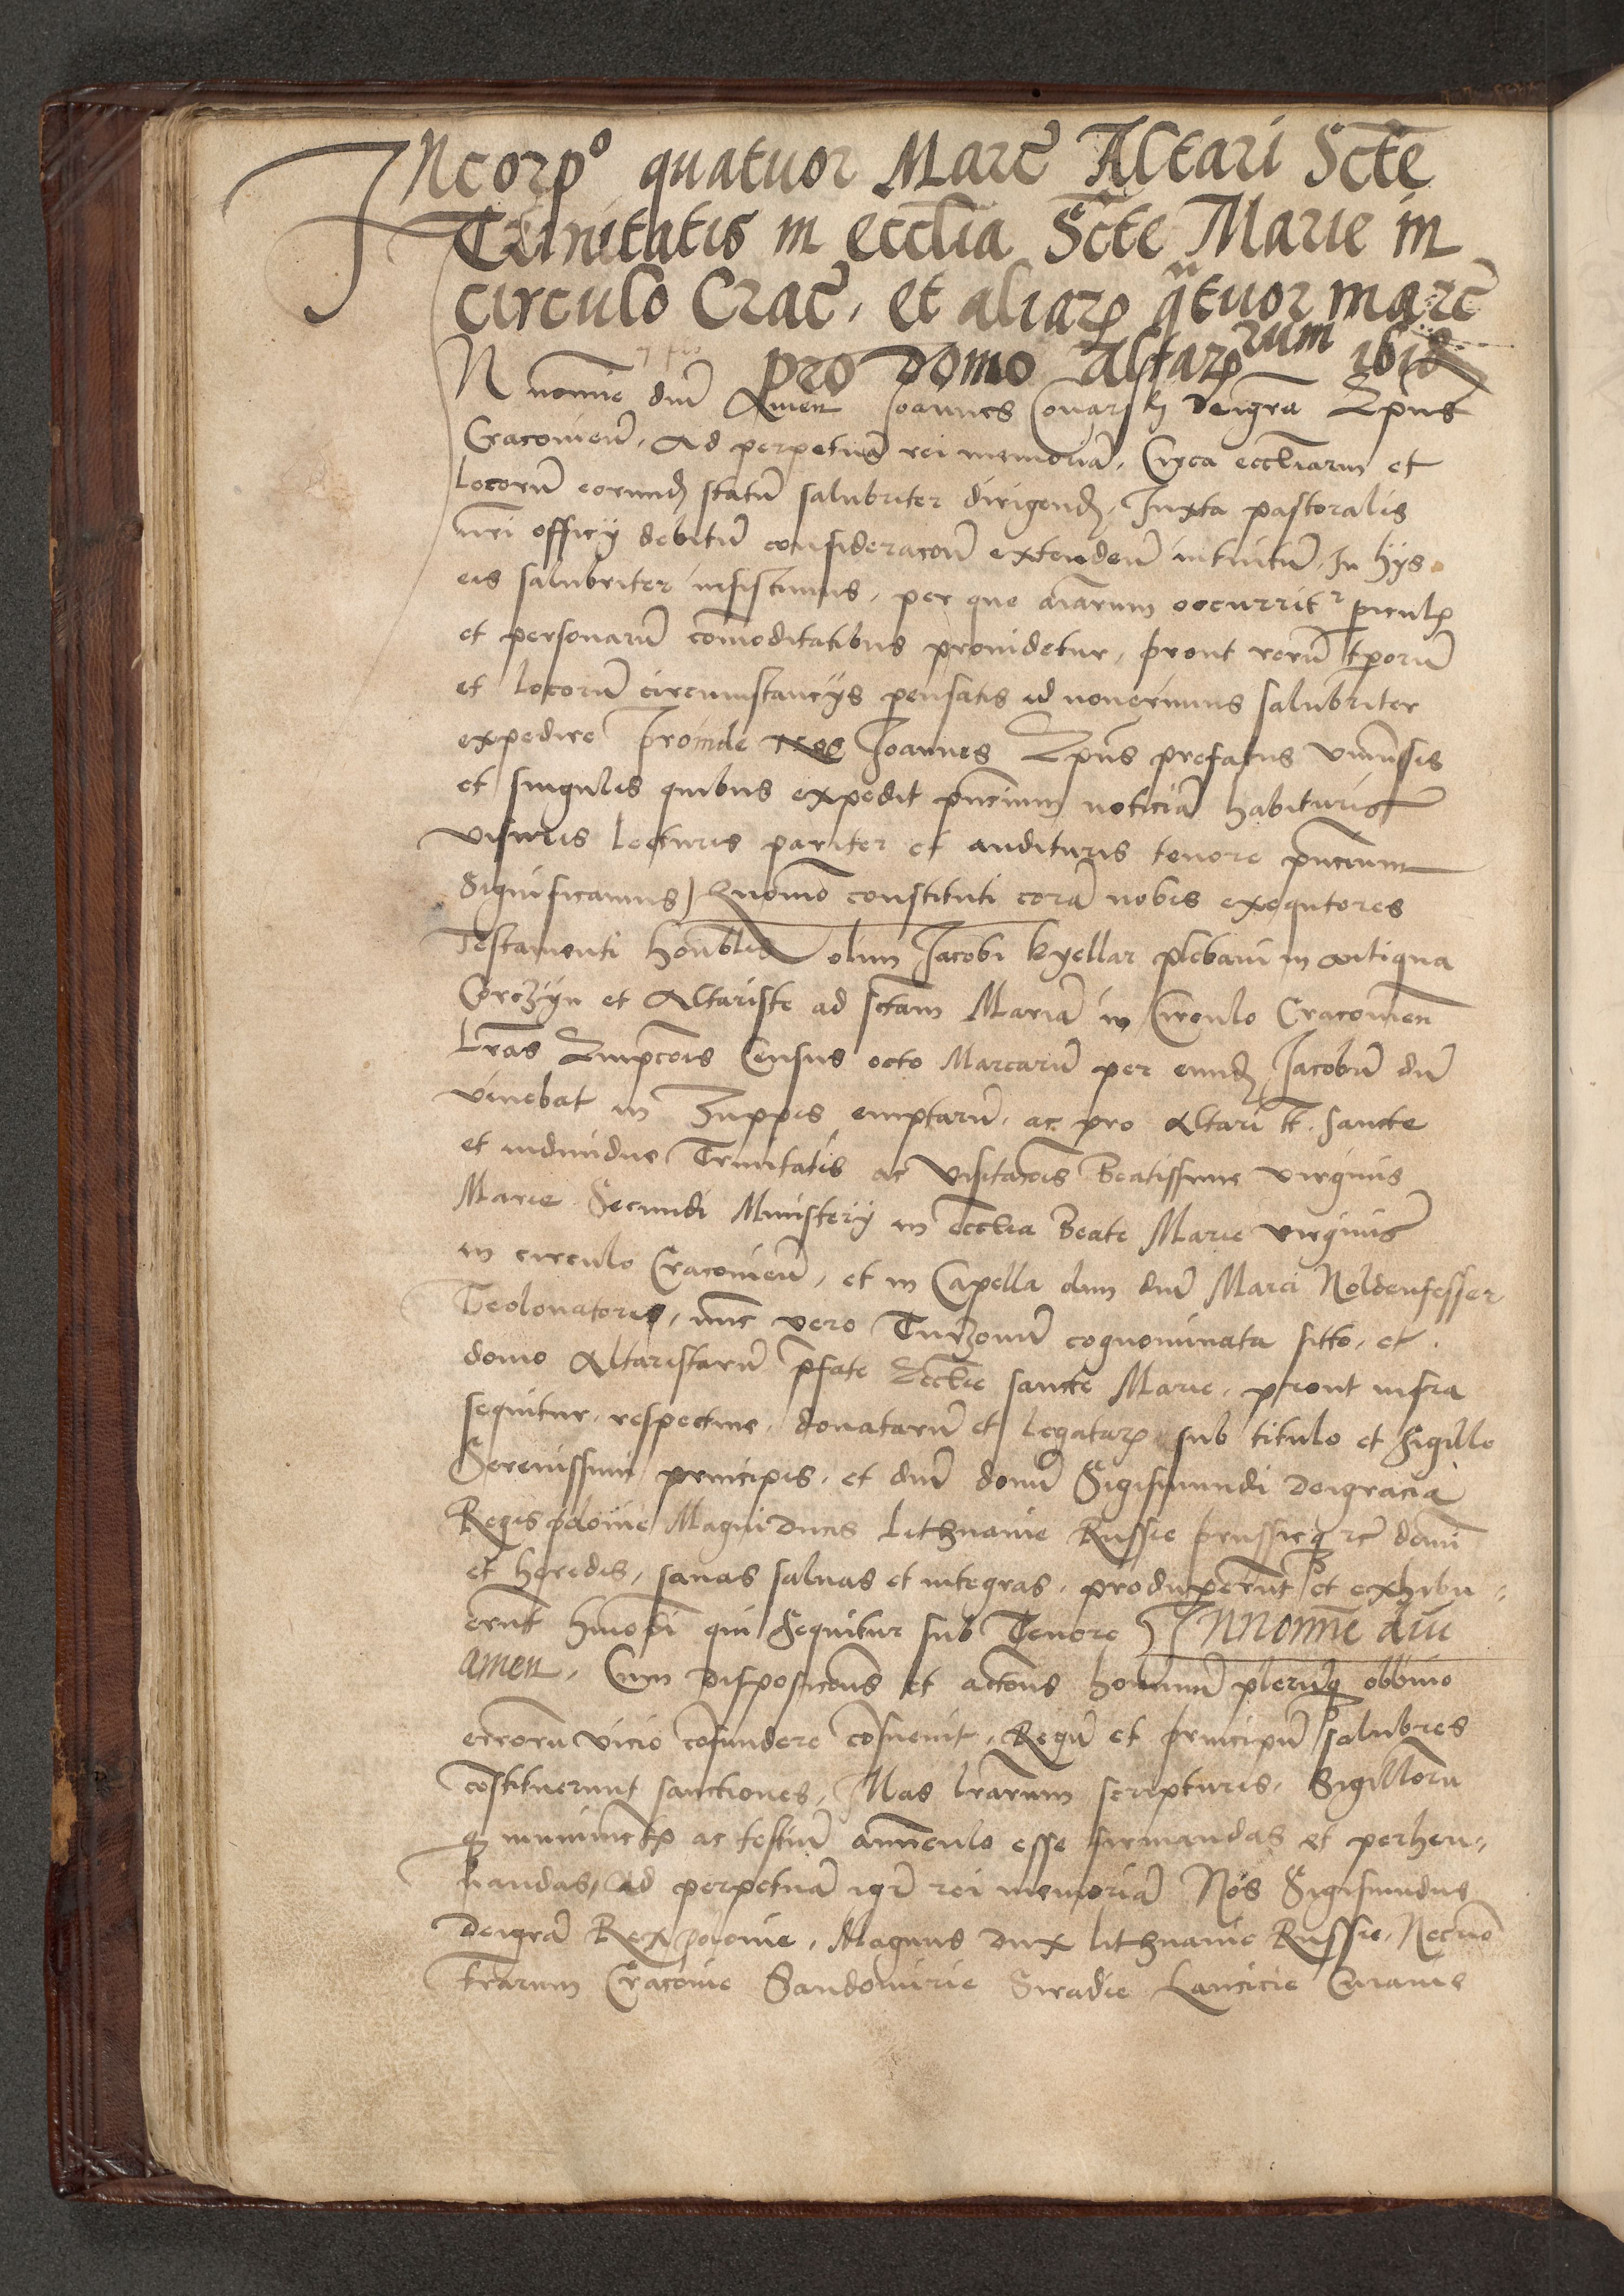 Incorpo quatuor Marc Altari Scte
Trinitatis in ecclia Scte Marie in
circulo Crac, et aliarum qtuor marc
pro Domo Altarrum ibid
N nomie dni Amen Joannes Conarski deigra Epus
Cracovien, Ad perpetua rei memoria, Circa eccliarum et
locoru eorund statu salubriter dirigend, Juxta pastoralis
nri officij debitu consideraconi extenden intuitu, In hijs
eis salubriter insistimus, per que aiarum occurrit piculis
et personaru comoditatibus providetur, prout reru tporu
et locoru circumstancijs pensatis id noverimus salubriter
expedire Proinde nos Joannes Epus prefatus Universis
et singulis quibus expedit pncium noticia habituris
visuris lecturis pariter et audituris tenore pncium
Significamus Quomo constituti cora nobis exequtores
Testamenti honblis olim Jacobi Kyellar plebani in antiqua
Corczyn et Altariste ad sctam Maria in Circulo Cracovien
Lras Empcois Census octo Marcaru per eund Jacobu du
vivebat in Zuppis emptaru, ac pro Altari tt. sancte
et individue Trinitatis ac Visitacois Beatissime virginis
Marie Secundi Ministerij in ecclia Beate Marie virginis
in circulo Cracovien, et in Capella olim dni Marci Noldenfesser
Teolonatoris, nunc vero Turzonu cognominata sitto, et
domo Altaristaru pfate Ecclie sancte Marie, prout infra
sequitur, respective, donataru et legatarum sub titulo et Sigillo
Serenissimi principis, et dni domi Sigismundi Deigracia
Regis polonie Magni Ducis Lithuanie Russie prussieq zc domi
et heredis, sanas salvas et integras, produxerunt et exhibu=
erunt hmodi qui sequitur sub Tenore In Nomie dni
amen, Cum dispositcois et actois hominu pleruq oblivio
erroru vicio cofundere cosuevit, Regu et principu salubres
costituerunt sanctiones, Illas lrarum scripturis, Sigilloru
q munimetis ac testiu amiculo esse firmandas et perhen=
nandas, Ad perpetua igr rei memoria Nos Sigismundus
Deigra Rex polonie, Magnus Dux Lithuanie Russie, Necno
trarum Cracovie Sandomirie Siradie Lancicie Cuiavie